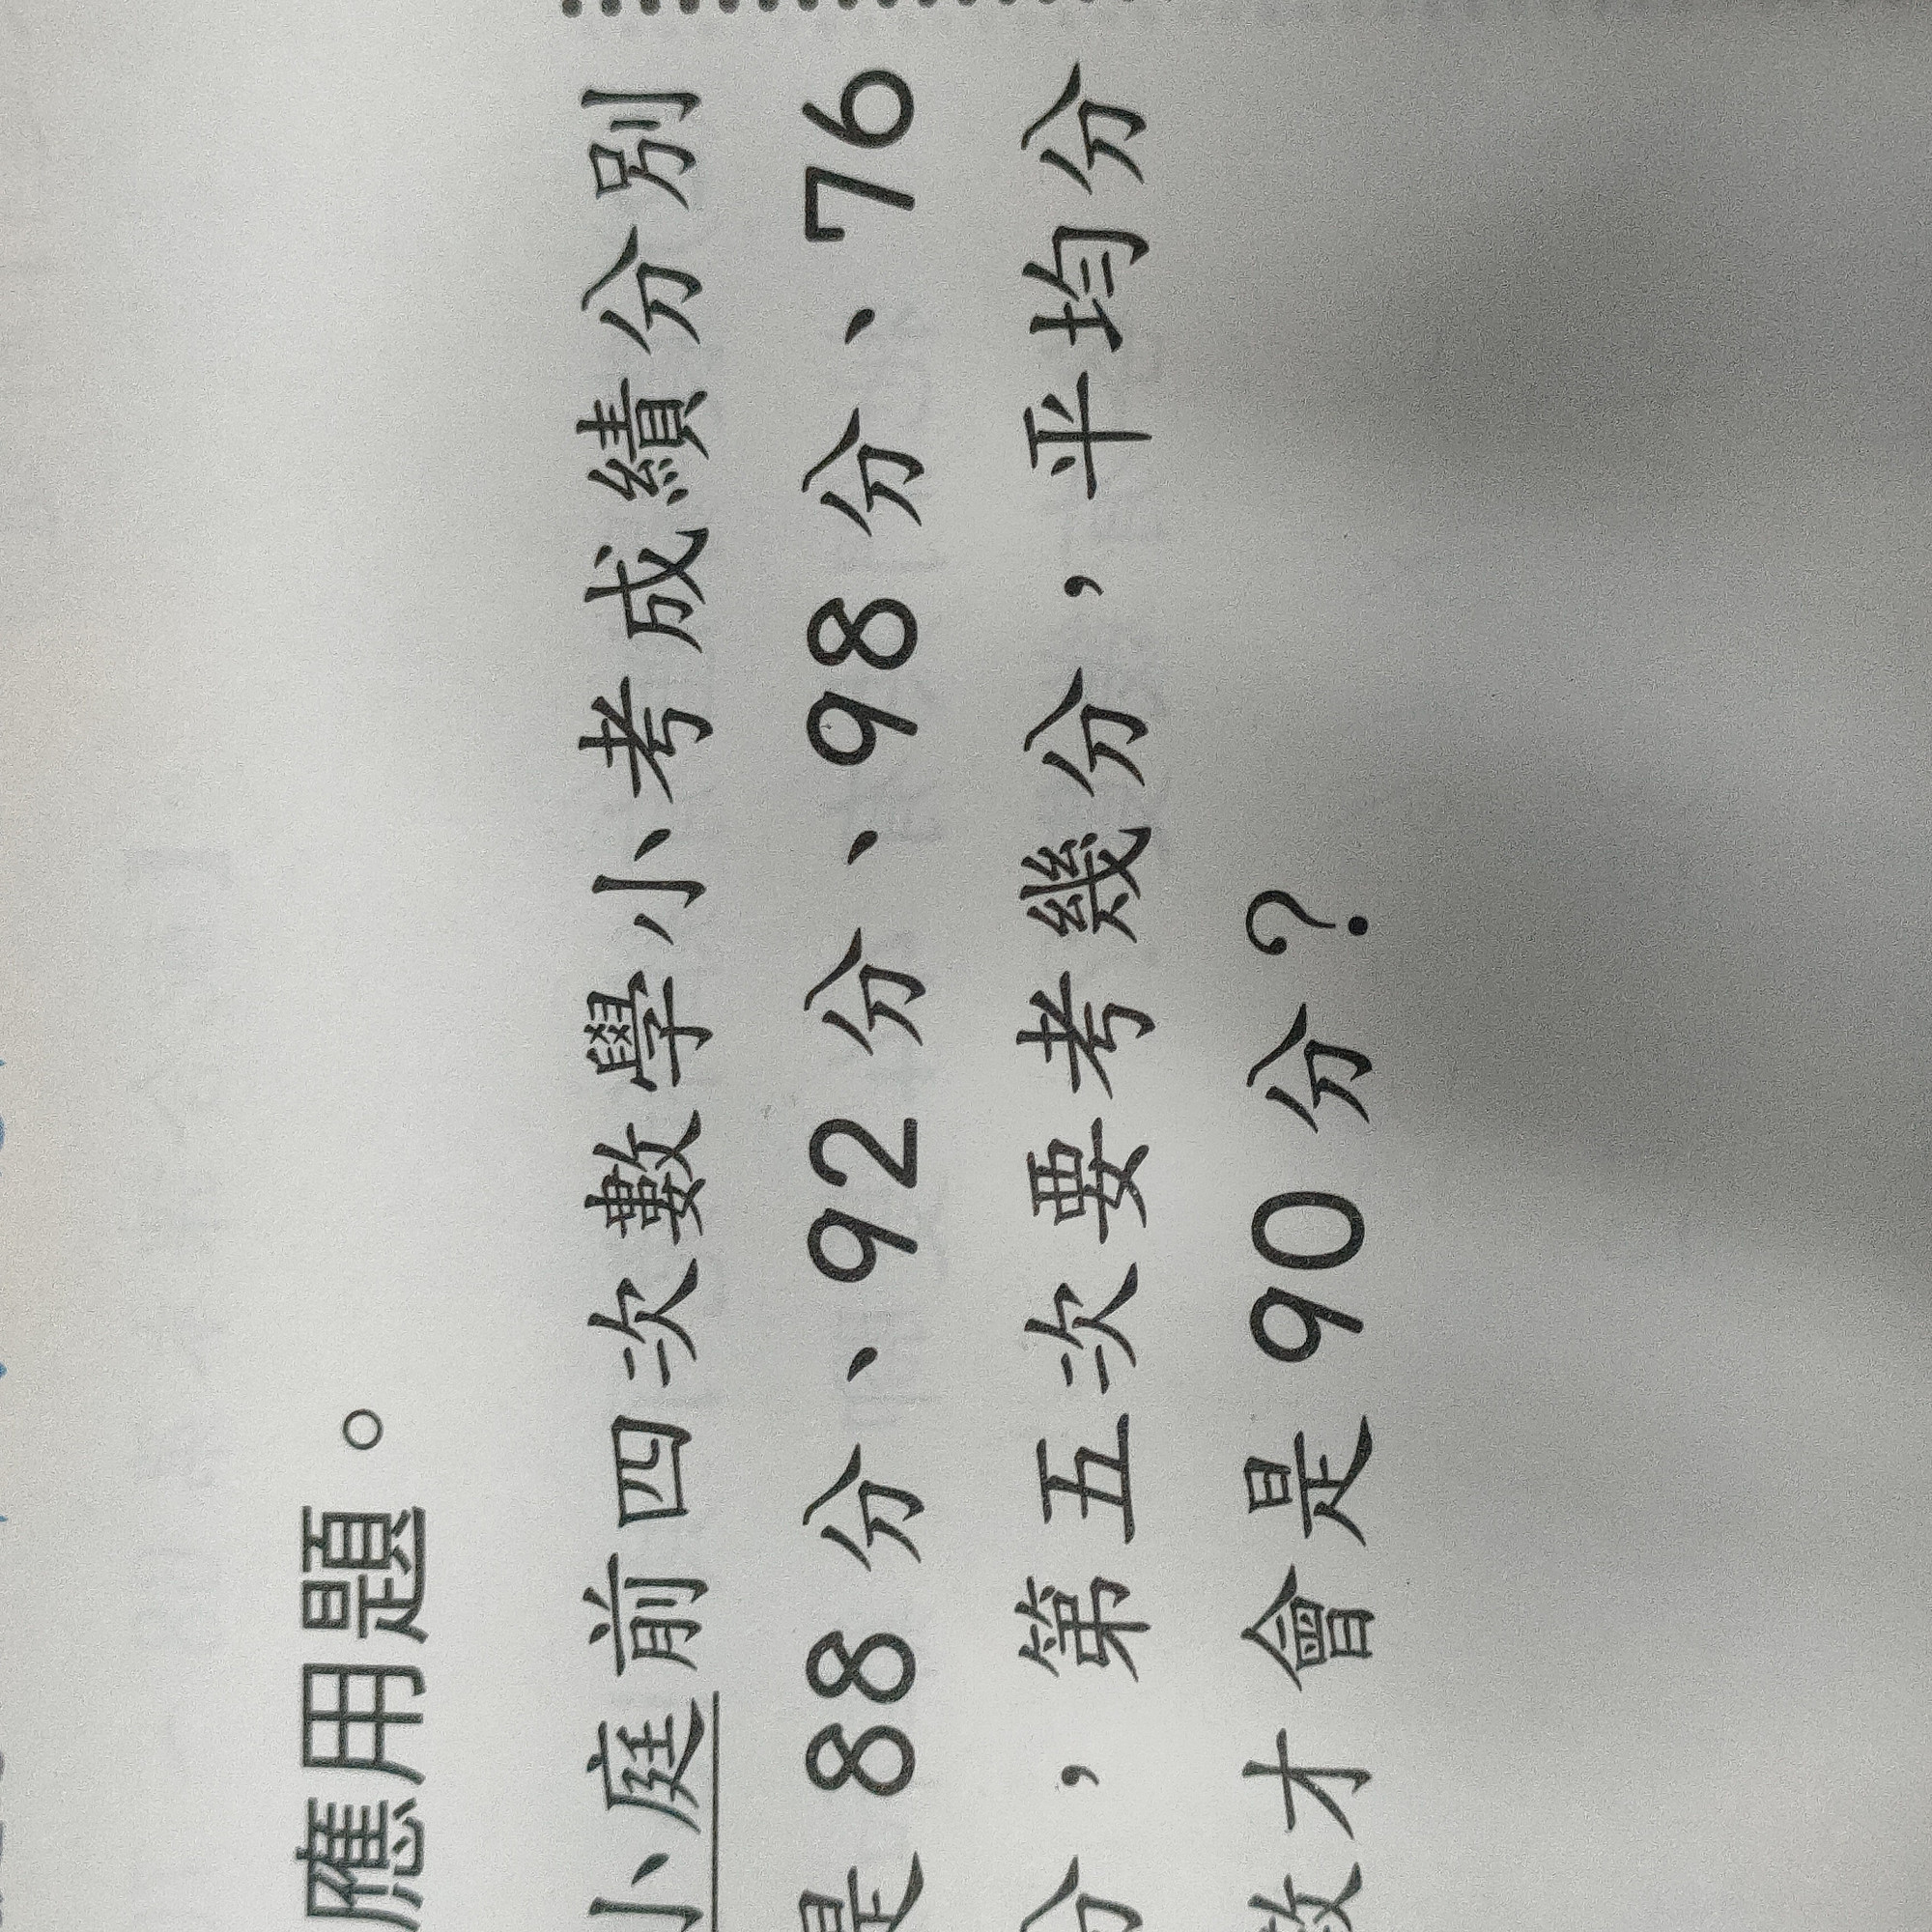 應用題。
小庭前四次數學小考成績分別
是 88 分、92 分、98 分、76
分，第五次要考幾分，平均分
數才會是 90 分？